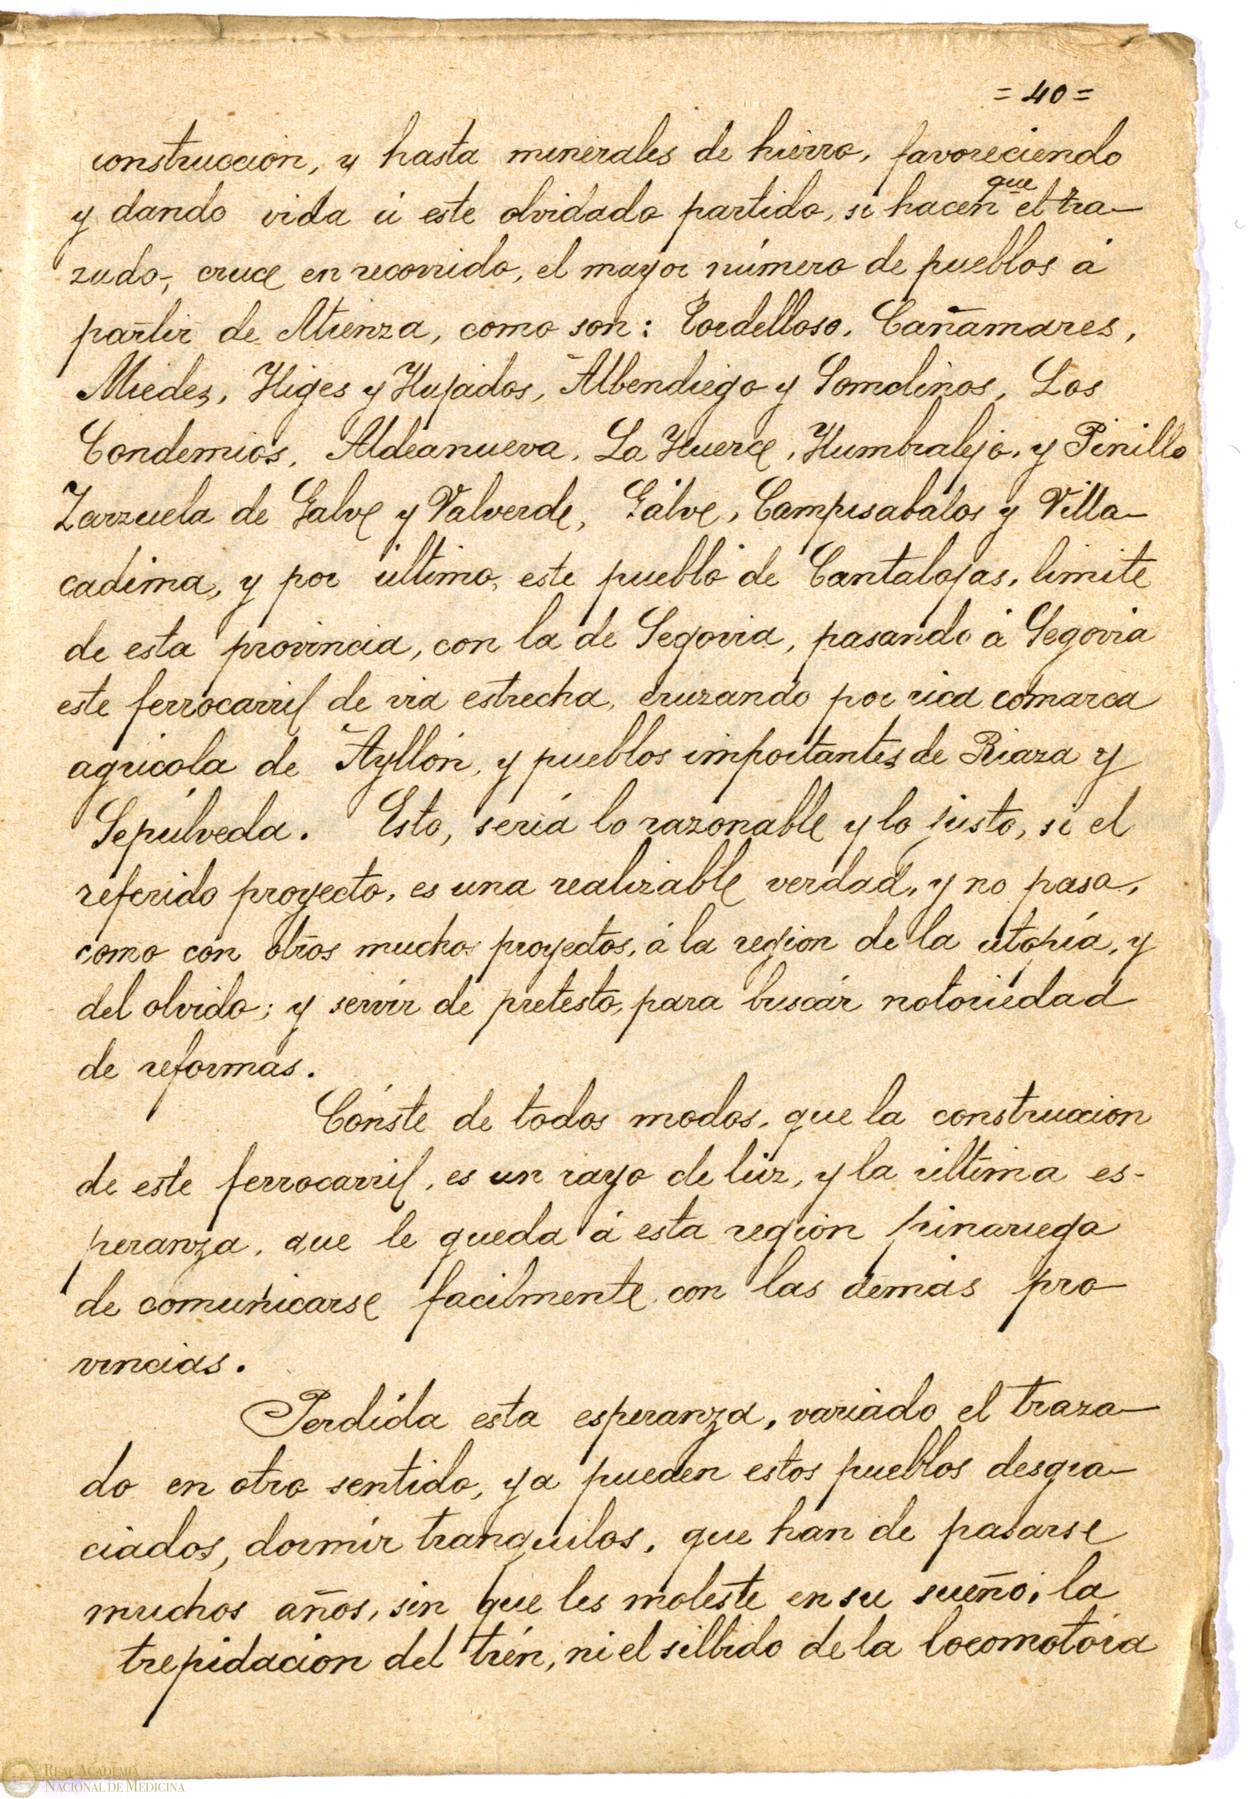 = 40 =
construccion, y hasta minerales de hierro, favoreciendo
y dando vida á este olvidado partido, si hacen que el tra-
zado, cruce en recorrido, el mayor número de pueblos á
partir de Atienza, como son: Tordelloso, Cañamares,
Miedes, Higes y Hujados, Albendiego y Somolinos, Los
Condemios, Aldeanueva, La Huerce, Humbralejo, y Pinilla
Zarzuela de Galve y Valverde, Gálve, Campisabalos y Villa-
cadima, y por último, este pueblo de Cantalojas, limite
de esta provincia, con la de Segovia, pasando á Segovia
este ferrocarril de via estrecha, cruzando por rica comarca
agricola de Ayllón, y pueblos importantes de Riaza y
Sepúlveda. Esto, seria lo razonable y lo justo, si el
referido proyecto, es una realizable verdad, y no pasa,
como con otros muchos proyectos, á la region de la utopía, y
del olvido; y servir de pretesto, para buscar notoriedad
de reformas.
Cónste de todos modos, que la construccion
de este ferrocarril, es un rayo de luz, y la última es-
peranza, que le queda á esta region pinariega
de comunicarse facilmente con las demás pro-
vincias.
Perdida esta esperanza, variado el traza-
do en otro sentido, ya pueden estos pueblos desgra-
ciados, dormir tranquilos, que han de pasarse
muchos años, sin que les moleste en su sueño, la
trepidacion del trén, ni el silbido de la locomotora
REAL ACADEMIA
NACIONAL DE MEDICINA